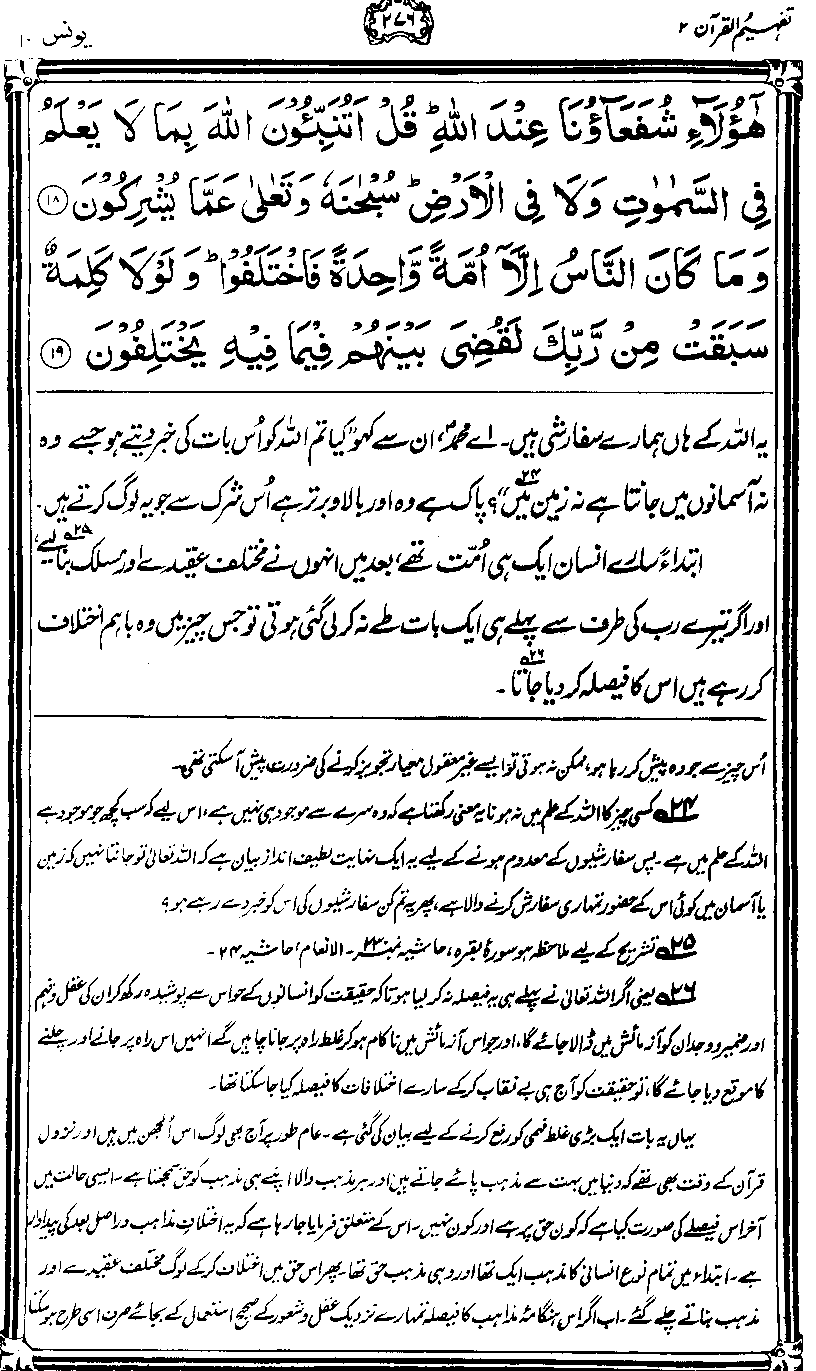 تفہیم القرآن ۲
۲۷۶
یونس ۱۰
هَٰٓؤُلَآءِ شُفَعَآؤُنَا عِنْدَ اللّٰهِ ؕ قُلْ اَتُنَبِّـُٔوْنَ اللّٰهَ بِمَا لَا يَعْلَمُ
فِى السَّمٰوٰتِ وَلَا فِى الْاَرْضِ ؕ سُبْحٰنَهٗ وَتَعٰلٰى عَمَّا يُشْرِكُوْنَ ۱۸
وَمَا كَانَ النَّاسُ اِلَّاۤ اُمَّةً وَّاحِدَةً فَاخْتَلَفُوْا ؕ وَلَوْلَا كَلِمَةٌ
سَبَقَتْ مِنْ رَّبِّكَ لَقُضِىَ بَيْنَهُمْ فِيْمَا فِيْهِ يَخْتَلِفُوْنَ ۱۹
یہ اللہ کے ہاں ہمارے سفارشی ہیں۔ اے محمدؐ، ان سے کہو ”کیا تم اللہ کو اُس بات کی خبر دیتے ہو جسے وہ
نہ آسمانوں میں جانتا ہے نہ زمین میں“؟ ۲۴ پاک ہے وہ اور بالا و برتر ہے اُس شرک سے جو یہ لوگ کرتے ہیں۔
ابتداءً سارے انسان ایک ہی اُمّت تھے، بعد میں انہوں نے مختلف عقیدے اور مسلک بنا لیے، ۲۵
اور اگر تیرے رب کی طرف سے پہلے ہی ایک بات طے نہ کر لی گئی ہوتی تو جس چیز میں وہ باہم اختلاف
کر رہے ہیں اس کا فیصلہ کر دیا جاتا۔ ۲۶
اُس چیز سے جو وہ پیش کر رہا ہو، ممکن نہ ہوتی تو ایسے غیر معقول معیار تجویز کرنے کی ضرورت پیش آ سکتی تھی۔
۲۴ کسی چیز کا اللہ کے علم میں نہ ہونا یہ معنی رکھتا ہے کہ وہ سرے سے موجود ہی نہیں ہے، اس لیے کہ سب کچھ جو موجود ہے
اللہ کے علم میں ہے۔ پس سفارشیوں کے معدوم ہونے کے لیے یہ ایک نہایت لطیف انداز بیان ہے کہ اللہ تعالیٰ تو جانتا نہیں کہ زمین
یا آسمان میں کوئی اس کے حضور تمہاری سفارش کرنے والا ہے، پھر یہ تم کن سفارشیوں کی اس کو خبر دے رہے ہو؟
۲۵ تشریح کے لیے ملاحظہ ہو سورۂ بقرہ، حاشیہ نمبر ۲۳۔ الانعام، حاشیہ ۲۴۔
۲۶ یعنی اگر اللہ تعالیٰ نے پہلے ہی یہ فیصلہ نہ کر لیا ہوتا کہ حقیقت کو انسانوں کے حواس سے پوشیدہ رکھ کر ان کی عقل و فہم
اور ضمیر و وجدان کو آزمائش میں ڈالا جائے گا، اور جو اس آزمائش میں ناکام ہو کر غلط راہ پر جانا چاہیں گے انہیں اس راہ پر جانے اور چلنے
کا موقع دیا جائے گا، تو حقیقت کو آج ہی بے نقاب کر کے سارے اختلافات کا فیصلہ کیا جا سکتا تھا۔
یہاں یہ بات ایک بڑی غلط فہمی کو رفع کرنے کے لیے بیان کی گئی ہے۔ عام طور پر آج بھی لوگ اس اُلجھن میں ہیں اور نزول
قرآن کے وقت بھی تھے کہ دنیا میں بہت سے مذہب پائے جاتے ہیں اور ہر مذہب والا اپنے ہی مذہب کو حق سمجھتا ہے۔ ایسی حالت میں
آخر اس فیصلے کی صورت کیا ہے کہ کون حق پر ہے اور کون نہیں۔ اس کے متعلق فرمایا جا رہا ہے کہ یہ اختلافِ مذاہب دراصل بعد کی پیداوار
ہے۔ ابتداء میں تمام نوع انسانی کا مذہب ایک تھا اور وہی مذہب حق تھا۔ پھر اس حق میں اختلاف کر کے لوگ مختلف عقیدے اور
مذہب بناتے چلے گئے۔ اب اگر اس ہنگامۂ مذاہب کا فیصلہ تمہارے نزدیک عقل و شعور کے صحیح استعمال کے بجائے صرف اسی طرح ہو سکتا